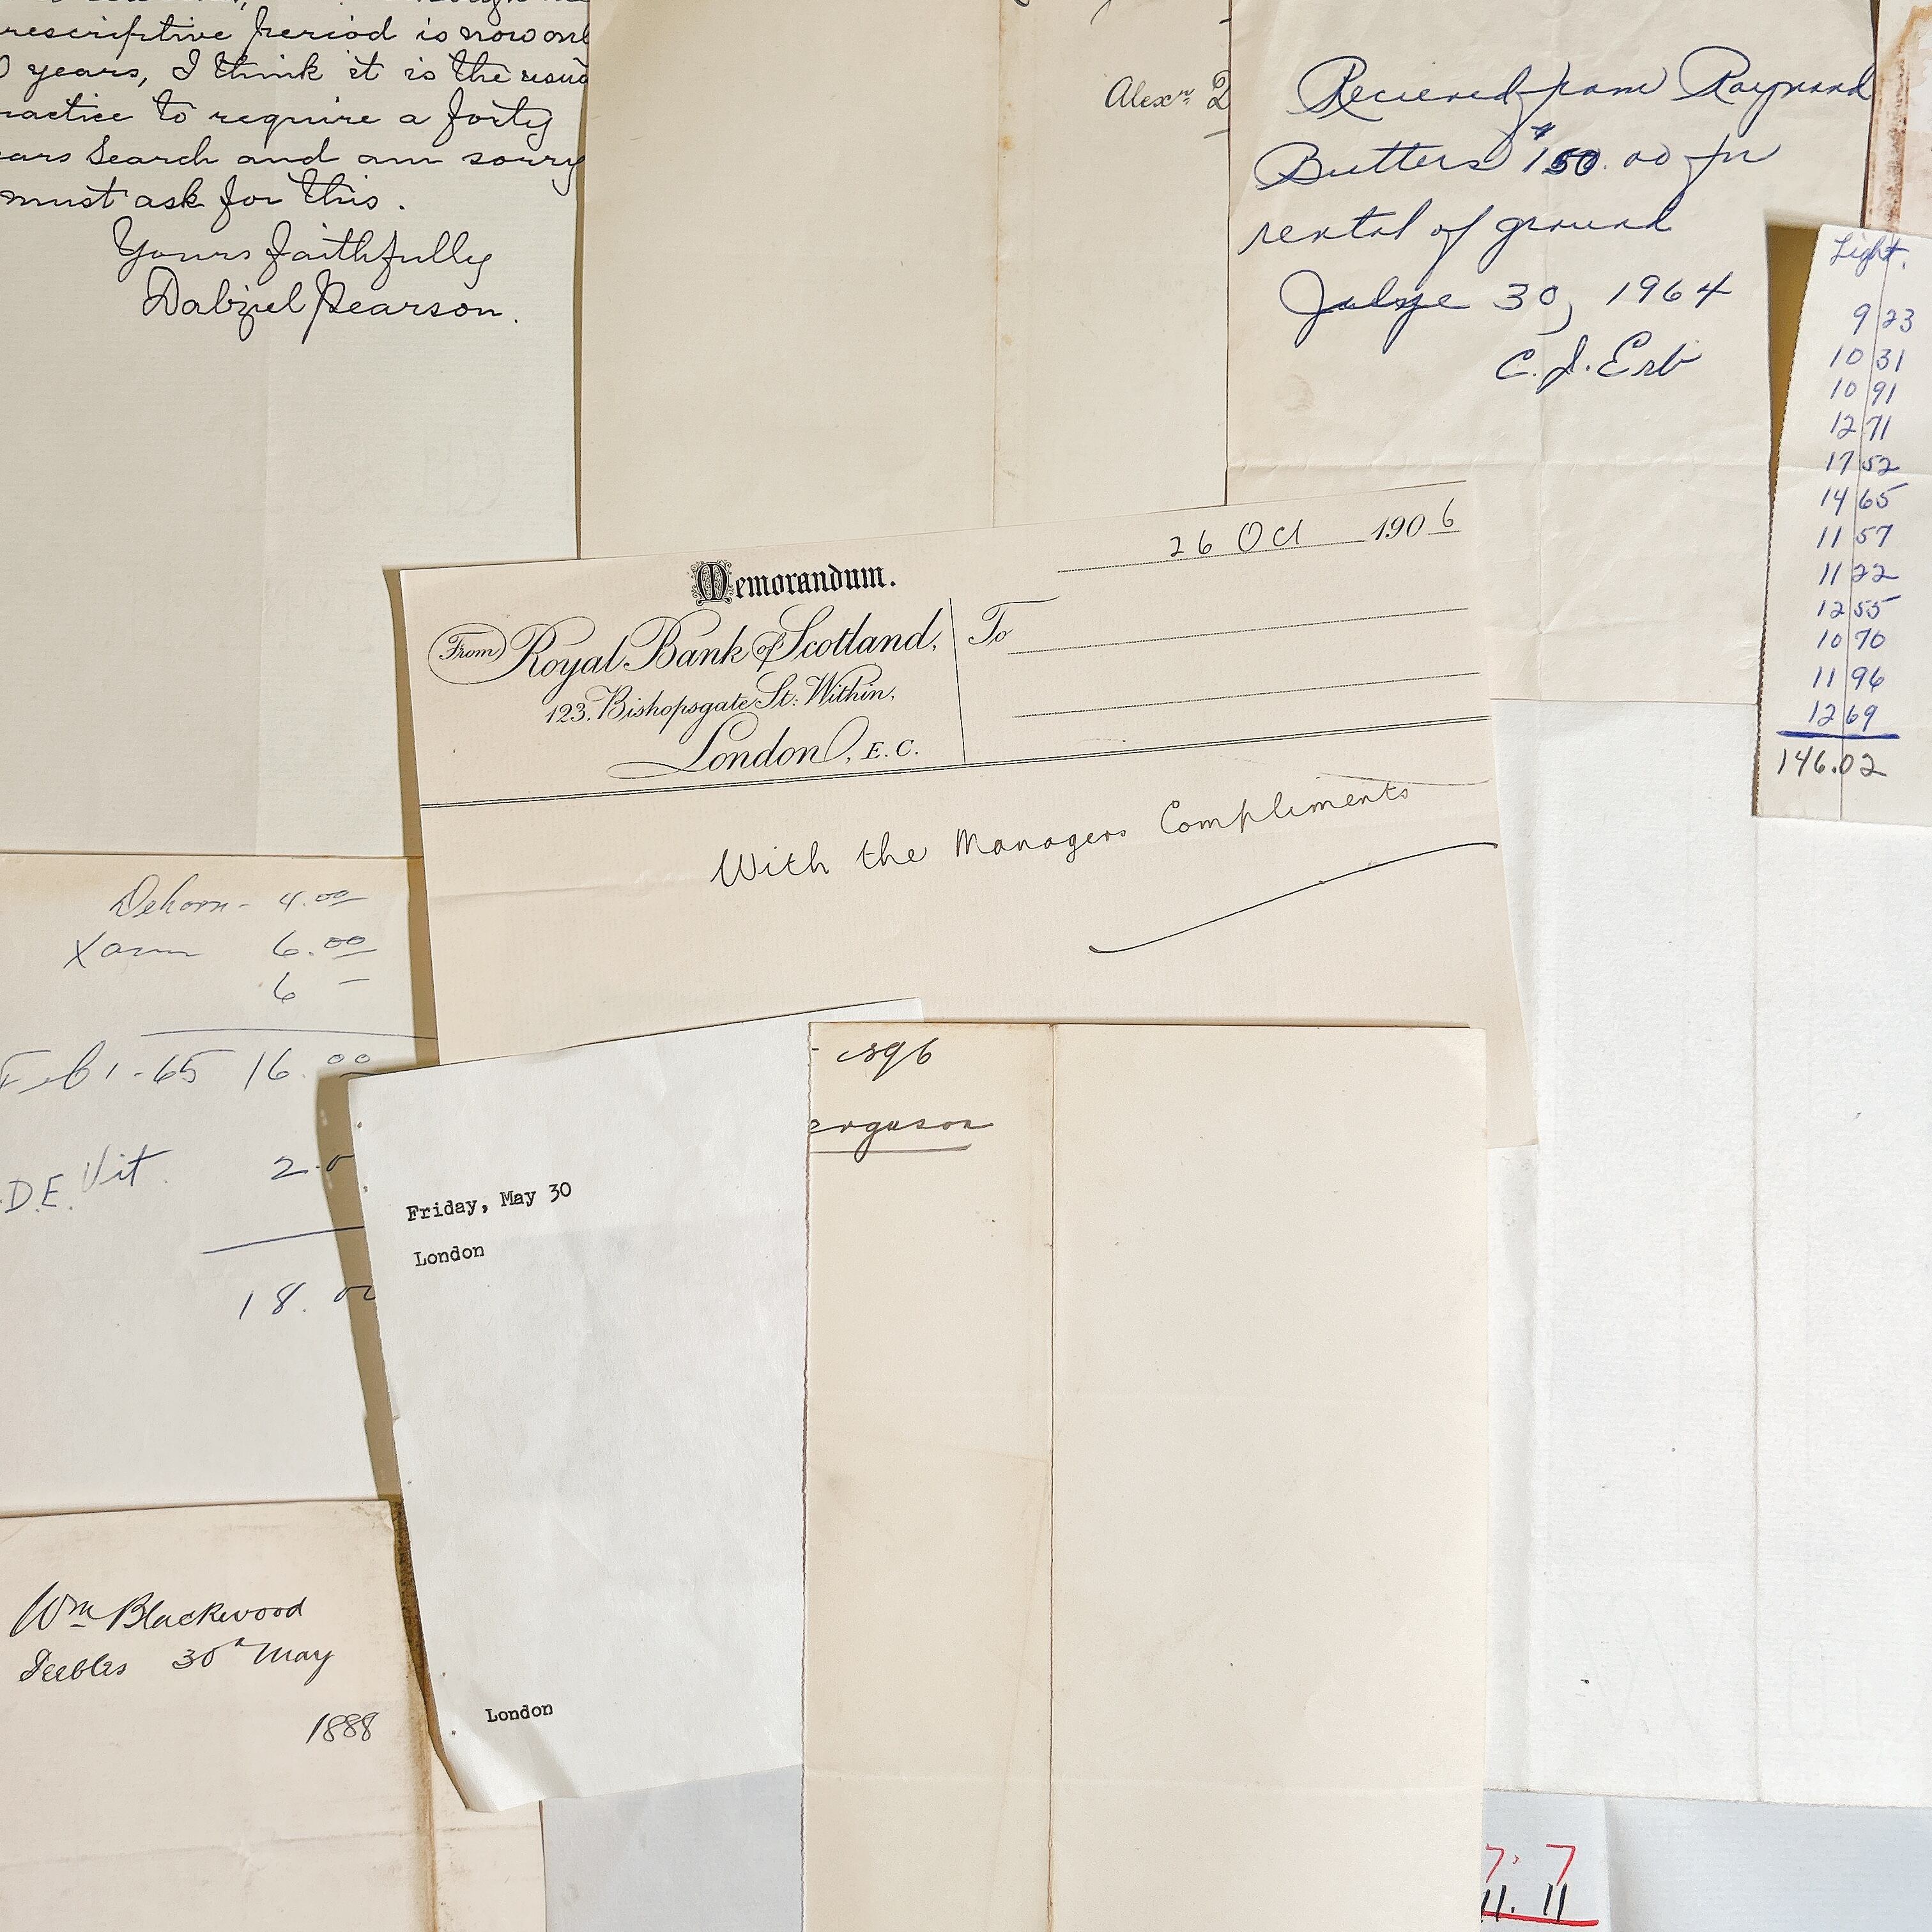 rescriptive period is now onl
0 years, I think it is the usua
ractice to require a forty
ears Search and am sorry
must ask for this.
Yours faithfully
Dalziel Pearson.
Alexr.
Recieved from Raymond
Butters $150.00 for
rental of ground
30, 1964
C. J. Erb
Light.
9 23
10 31
10 91
12 71
17 52
14 65
11 57
11 22
12 55
10 70
11 96
12 69
146.02
26 Oct 1906
Memorandum.
From Royal Bank of Scotland,
123, Bishopsgate St: Within,
London, E.C.
To
With the Managers Compliments
Dehorn - 4.00
6.00
6 -
Feb 1 - 65 16.00
D.E. Vit. 2.0
18.00
erguson
Friday, May 30
London
London
Wm Blackwood
Peebles 30th May
1888
7. 7
11. 11